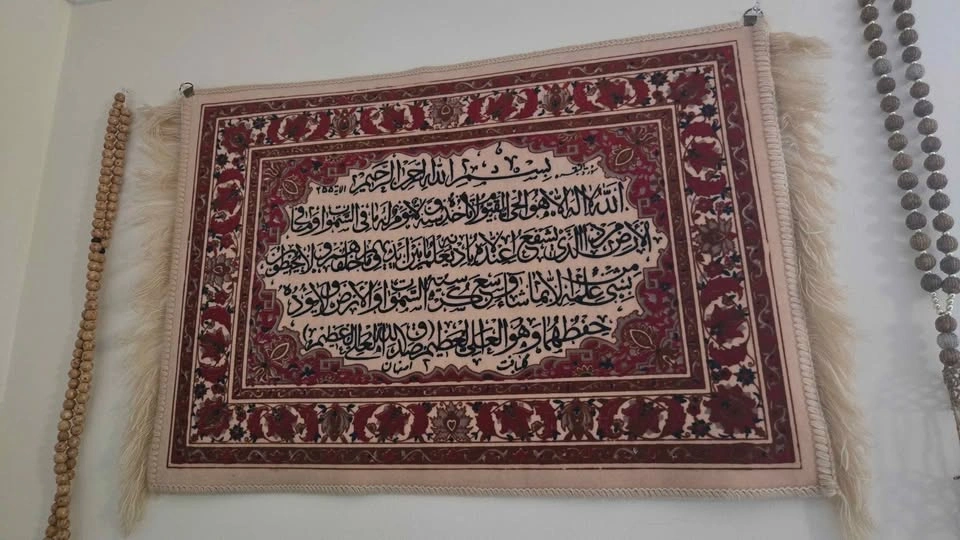 سورة البقرة بسم الله الرحمن الرحيم الاية ٢٥٥
الله لا اله الا هو الحي القيوم لا تأخذه سنة ولا نوم له ما في السموات وما في
الارض من ذا الذي يشفع عنده الا باذنه يعلم ما بين ايديهم وما خلفهم ولا يحيطون
بشيء من علمه الا بما شاء وسع كرسيه السموات والارض ولا يؤده
حفظهما وهو العلي العظيم صدق الله العلي العظيم